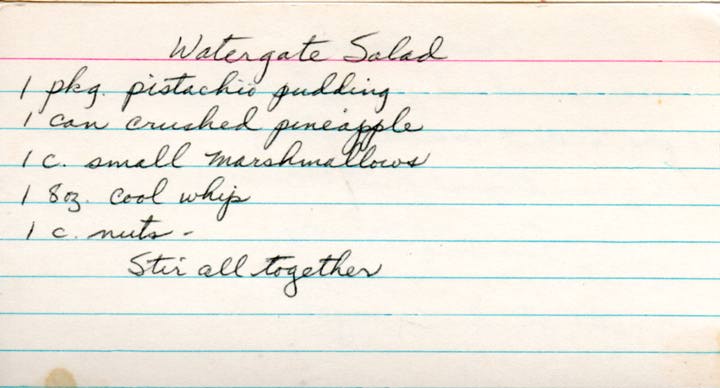 Watergate Salad
1 pkg. pistachio pudding
1 can crushed pineapple
1 c. small marshmallows
1 8oz. cool whip
1 c. nuts -
Stir all together